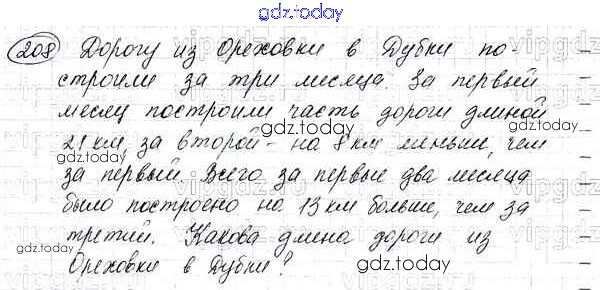 208 Дорогу из Ореховки в Дубки по-
строили за три месяца. За первый
месяц построили часть дороги длиной
21 км, за второй - на 8 км меньше, чем
за первый. Всего за первые два месяца
было построено на 13 км больше, чем за
третий. Какова длина дороги из
Ореховки в Дубки?
gdz.today